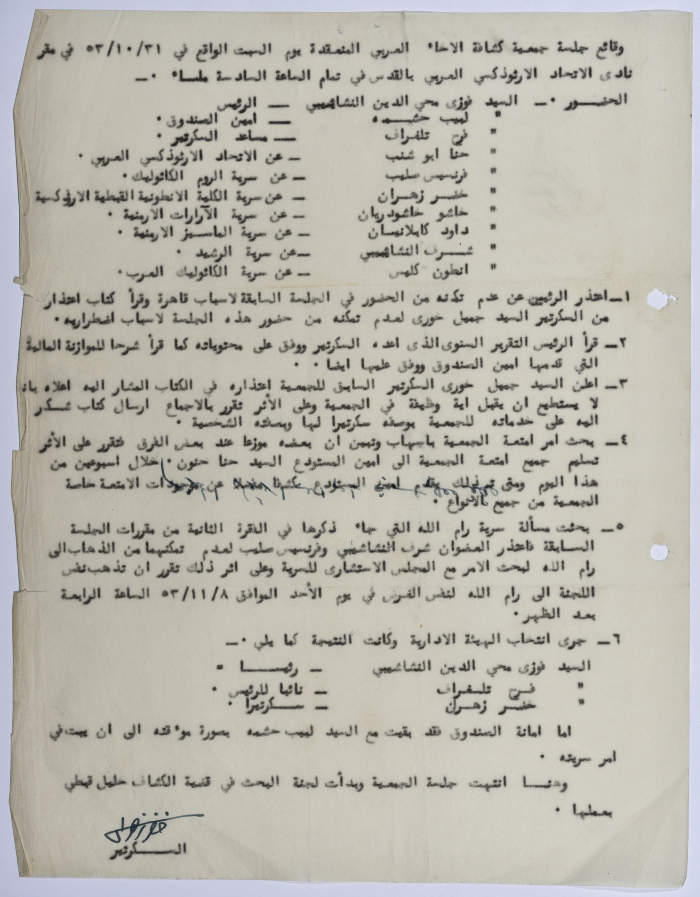 وقائع جلسة جمعية كشافة الاخاء العربي المنعقدة يوم السبت الواقع في ٥٣/١٠/٣١ في مقر
نادى الاتحاد الارثوذكسي العربي بالقدس في تمام الساعة السادسة مساء ٠ ــ
الحضور ٠ ــ السيد فوزى محي الدين النشاشيبي ــ الرئيس
" لبيب حشمه ــ امين الصندوق ٠
" فرج تلفراف ــ مساعد السكرتير ٠
" حنا ابو شنب ــ عن الاتحاد الارثوذكسي العربي ٠
" فرنسيس صليب ــ عن سرية الروم الكاثوليك ٠
" خضر زهران ــ عن سرية الكلية الانطونية القبطية الارثوذكسية
" خاشو خاشودريان ــ عن سرية الآرارات الارمنية ٠
" داود كابلانيسان ــ عن سرية الماسيز الارمنية ٠
" شرف النشاشيبي ــ عن سرية الرشيد ٠
" انطون كليس ــ عن سرية الكاثوليك العرب ٠
١ــ اعتذر الرئيس عن عدم تمكنه من الحضور في الجلسة السابقة لاسباب قاهرة وقرأ كتاب اعتذار
من السكرتير السيد جميل خورى لعدم تمكنه من حضور هذه الجلسة لاسباب اضطراريه ٠
٢ــ قرأ الرئيس التقرير السنوى الذى اعده السكرتير ووفق على محتوياته كما قرأ شرحا للموازنة المالية
التي قدمها امين الصندوق ووفق عليها ايضا ٠ ٠
٣ــ اعلن السيد جميل خورى السكرتير السابق للجمعية اعتذاره في الكتاب المشار اليه اعلاه بانه
لا يستطيع ان يقبل اية وظيفة في الجمعية وعلى الأثر تقرر بالاجماع ارسال كتاب شكر
اليه على خدماته للجمعية بوصفه سكرتيرا لها وبصفته الشخصية ٠
٤ــ بحث امر امتعة الجمعية باسهاب وتبين ان بعضه موزعا عند بعض الفرق فتقرر على الأثر
تسليم جميع امتعة الجمعية الى امين المستودع السيد حنا حنون خلال اسبوعين من
هذا اليوم ومتى تم ذلك يتقدم امين المستودع كشفا عن موجودات الامتعة خاصة
الجمعية من جميع الانواع ٠
٥ــ بحثت مسألة سرية رام الله التي جاء ذكرها في الفقرة الثانية من مقررات الجلسة
السابقة فاعتذر العضوان شرف النشاشيبي وفرنسيس صليب لعدم تمكنهما من الذهاب الى
رام الله لبحث الامر مع المجلس الاستشارى للسرية وعلى اثر ذلك تقرر ان تذهب نفس
اللجنة الى رام الله لنفس الغرض في يوم الأحد الموافق ٥٣/١١/٨ الساعة الرابعة
بعد الظهر ٠
٦ــ جرى انتخاب الهيئة الادارية وكانت النتيجة كما يلي ٠ــ
السيد فوزى محي الدين النشاشيبي ــ رئيسا ٠
" فرج تلفراف ــ نائبا للرئيس ٠
" خضر زهران ــ سكرتيرا ٠
اما امانة الصندوق فقد بقيت مع السيد لبيب حشمه بصورة موءقته الى ان يبت في
امر سريته ٠
وهنا انتهت جلسة الجمعية وبدأت لجنة البحث في قضية الكشاف خليل قبطي
بعملها ٠
السكرتير